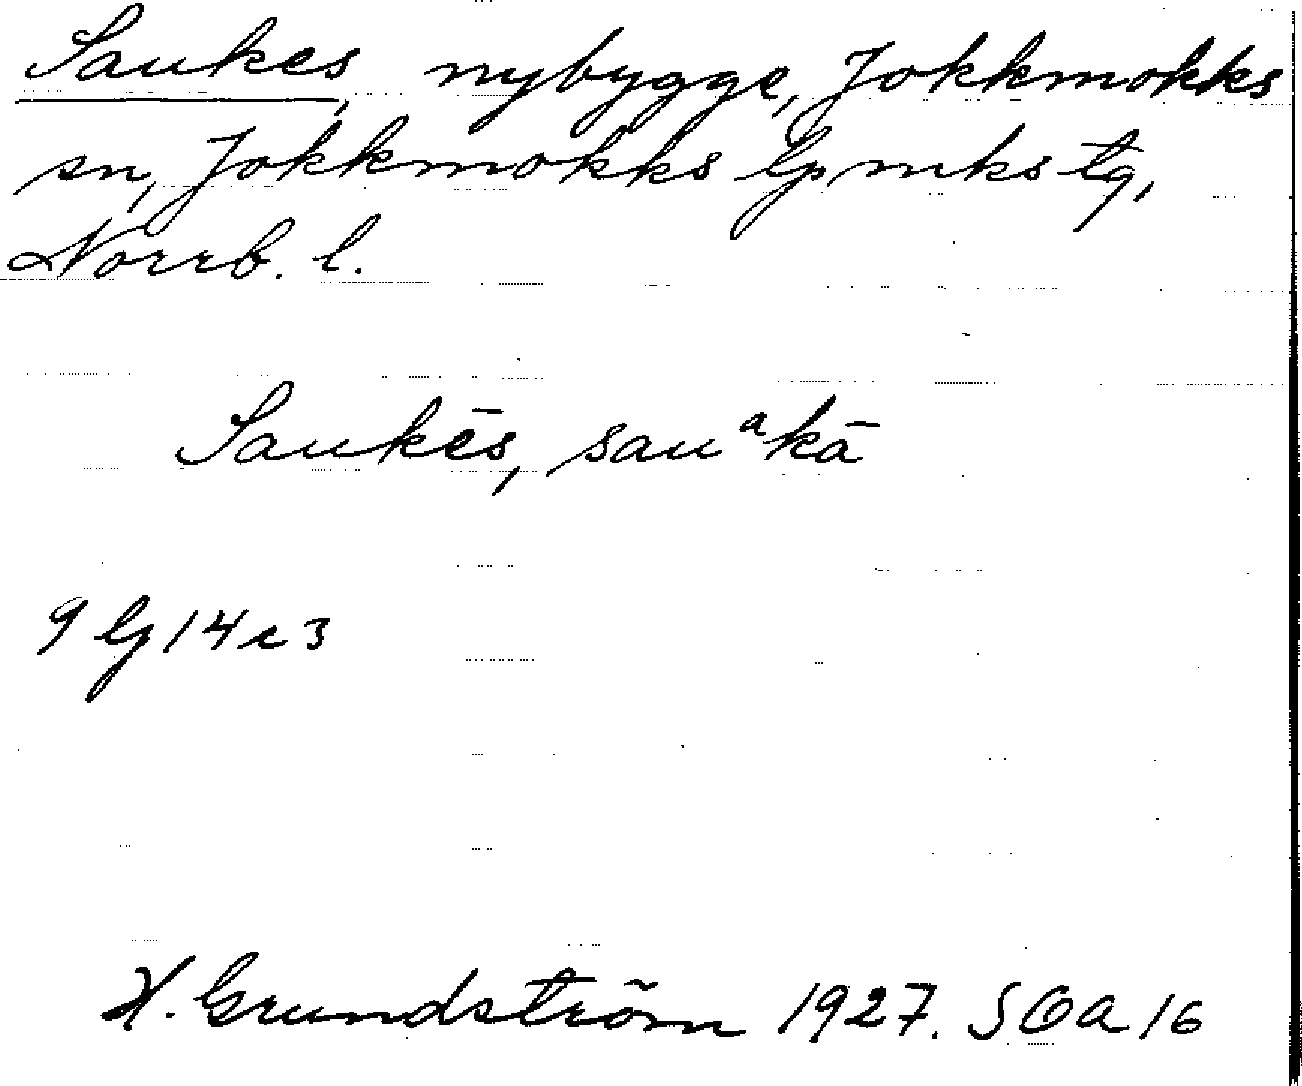 Saukes, nybygge, Jokkmokks
sn, Jokkmokks lpmks tg,
Norrb. l.
Saukēs, sauᵃkā
9 G 14 c 3
H. Grundström 1927. SOA 16